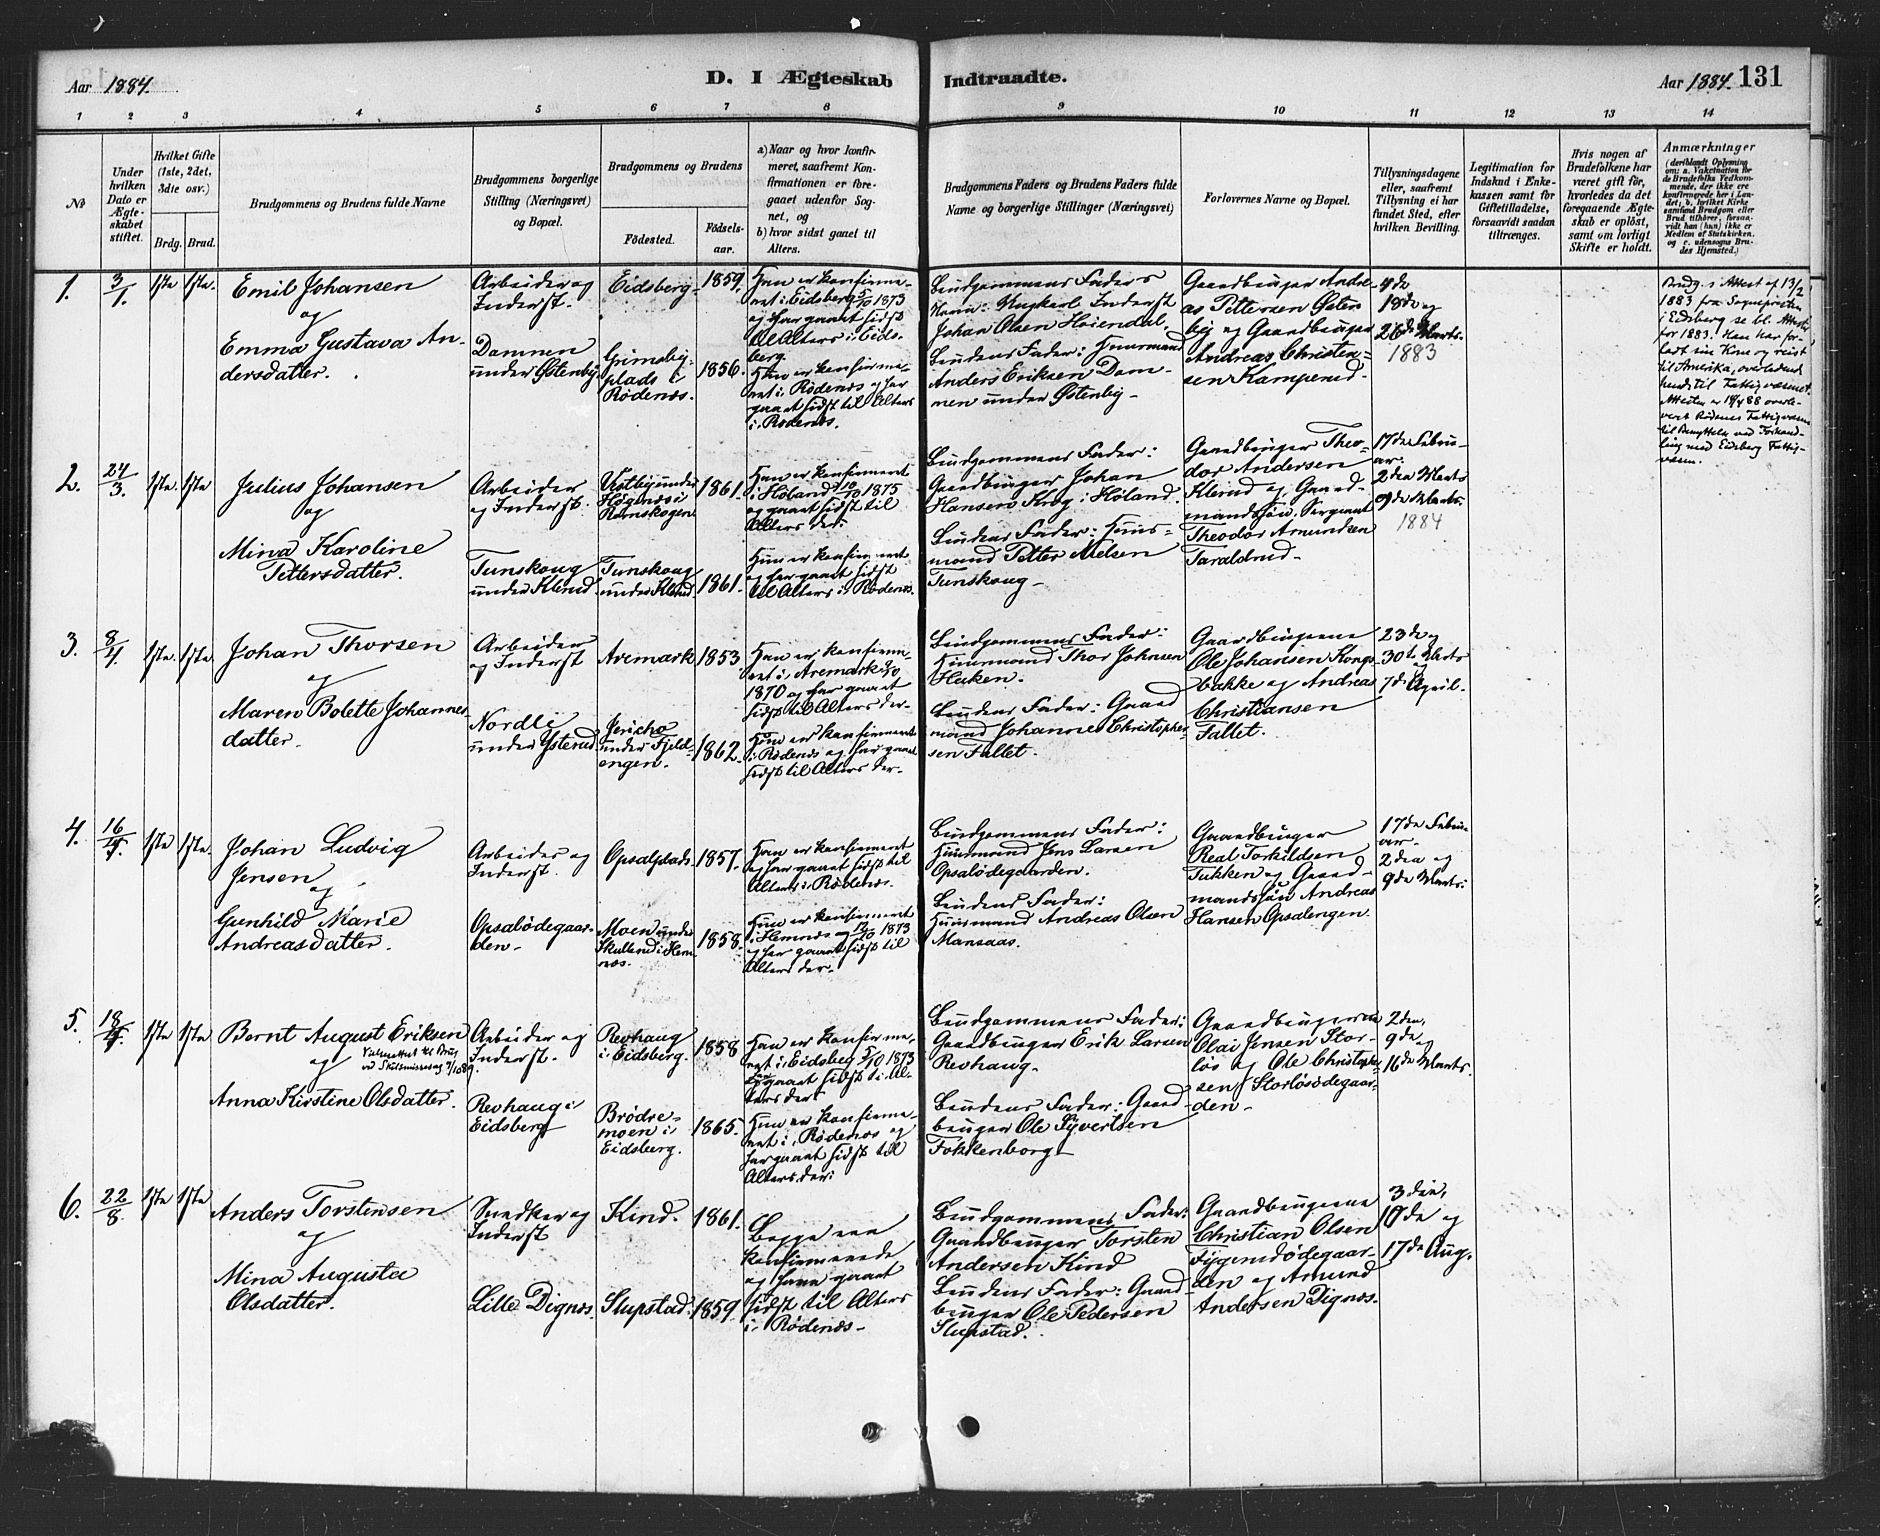 Aar 1884.
D. I Ægteskab Indtraadte.
Aar 1884. 131
1 2 3 4 5 6 7 8 9 10 11 12 13 14
No
Under
hvilken
Dato er
Ægte-
skabet
stiftet.
Hvilket Gifte
(1ste, 2det,
3die osv.)
Brdg. Brud.
Brudgommens og Brudens fulde Navne
Brudgommens borgerlige
Stilling (Næringsvei)
og Bopæl.
Brudgommens og Brudens
Fødested.
Fødsels-
aar.
a) Naar og hvor konfir-
meret, saafremt Kon-
firmationen er fore-
gaaet udenfor Sog-
net, og
b) hvor sidst gaaet til
Alters.
Brudgommens Faders og Brudens Faders fulde
Navne og borgerlige Stillinger (Næringsvei)
Forlovernes Navne og Bopæl.
Tillysningsdagene
eller, saafremt
Tillysning ei har
fundet Sted, efter
hvilken Bevilling.
Legitimation for
Indskud i Enke-
kassen samt for
Giftetilladelse,
forsaavidt saadan
tiltrænges.
Hvis nogen af
Brudefolkene har
været gift før,
hvorledes da det
foregaaende Ægte-
skab er opløst,
samt om lovligt
Skifte er holdt.
Anmærkninger
(deriblandt Oplysning
om: a. Vaccination for
de Brudefolks Vedkom-
mende, der ikke ere
konfirmerede her i Lan-
det; b. hvilket Kirke
samfund Brudgom eller
Brud tilhører, forsaa-
vidt han (hun) ikke er
Medlem af Statskirken,
og c. udensogns Bru-
des Hjemsted.)
1.
3/1.
1ste 1ste.
Emil Johansen
og
Emma Gustava An-
dersdatter.
Arbeider og
Inderst.
Dammen
under Østenby.
Eidsberg.
Grimsby-
plads i
Rødenæs.
1859.
1856.
Han er konfirme-
ret i Eidsberg 5/10 1873
og har gaaet sidst
til Alters i Eids-
berg.
Hun er konfirme-
ret i Rødenæs og har
gaaet sidst til Alters
i Rødenæs.
Brudgommens Faders
Navn: Huskarl Inderst
Johan Olsen Høiendal.
Brudens Fader: Husmand
Anders Eriksen Dam-
men under Østenby.
Gaardbruger Andre-
as Pettersen Østen-
by og Gaardbruger
Andreas Christen-
sen Kamperud.
4de
18de og
26de Marts.
1883
Brudg.s Attest af 13/2
1883 fra Sognepresten
i Eidsberg se bl. Attester
for 1883. Han har for-
ladt sin Kone og reist
til Amerika, overladende
hende til Fattigvæsenet.
Attesten er 18/4 88 overle-
veret Rødenes Fattigvæsen
til Benyttelse ved Forhand-
ling med Eidsberg Fattig-
væsen.
2.
24/3.
1ste. 1ste
Julius Johansen
og
Mina Karoline
Pettersdatter.
Arbeider
og Inderst.
Tunskoug
under Klerud.
Vestby under
Høgnæs i
Rømskogen
Tunskoug
under Klerud.
1861.
1861.
Han er konfirmeret
i Høland 3/10 1875
og gaaet sidst til
Alters der.
Hun er konfirmeret
og har gaaet sidst
til Alters i Rødenæs.
Brudgommens Fader:
Gaardbruger Johan
Hansen Krog i Høland.
Brudens Fader: Huus-
mand Petter Nielsen
Tunskoug
Gaardbruger Theo-
dor Andersen
Klerud og Gaard-
mandssøn Sergeant
Theodor Amundsen
Taraldrud.
17de Febru-
ar.
2den Marts
9de Marts.
1884
3.
8/4.
1ste. 1ste.
Johan Thorsen
og
Maren Bolette Johannes-
datter.
Arbeider
og Inderst
Nordli
under Ysterud
Aremark
Jericho
under Fjeld-
engen.
1853.
1862.
Han er konfirme-
ret i Aremark
1870 og har gaaet
sidst til Alters der.
Hun er konfirmeret
i Rødenæs og har gaaet
sidst til Alters der.
Brudgommens Fader:
Huusmand Thor Johnsen
Haken.
Brudens Fader: Gaard-
mand Johannes Christopher-
sen Fallet.
Gaardbrugerne
Ole Johansen Kongs-
bakke og Andreas
Christiansen
Fallet.
23de og
30te Marts
og
7de April.
4.
16/4.
1ste 1ste.
Johan Ludvig
Jensen
og
Gunhild Marie
Andreasdatter.
Arbeider og
Inderst.
Opsalødegaar-
den.
Opsalplads.
Moen under
Skulleud i Hem-
næs.
1857.
1858.
Han er konfirmeret
og har gaaet sidst til
Alters i Rødenæs.
Hun er konfirmeret
i Hemnæs 12/10 1873
og har gaaet sidst til
Alters der.
Brudgommens Fader:
Huusmand Jens Larsen
Opsalødegaarden.
Brudens Fader:
Huusmand Andreas Olsen
Mansaas.
Gaardbruger
Real Torkildsen
Tukken og Gaard-
mandssøn Andreas
Hansen Opsalengen.
17de Febru-
ar.
2den og
9de Marts.
5.
18/4.
1ste 1ste
Bernt August Eriksen
og
ved Skilsmissesag 7/10 89.
Anna Kirstine Olsdatter.
Arbeider og
Inderst.
Revhaug i
Eidsberg
Revhaug
i Eidsberg.
Brødre-
moen i
Eidsberg.
1858
1865.
Han er konfirme-
ret i Eidsberg 5/10 1873
og gaaet sidst til Al-
ters der
Hun er konfirme-
ret i Rødenæs og
har gaaet sidst til
Alters der.
Brudgommens Fader:
Gaardbruger Erik Larsen
Revhaug.
Brudens Fader: Gaard-
bruger Ole Syvertsen
Fokkenborg
Gaardbrugerne
Olai Jensen Stor-
løs og Ole Christophe-
sen Storløsødegaar-
den.
2den,
9de og
16de Marts.
6.
22/8.
1ste 1ste
Anders Torstensen
og
Mina Augusta
Olsdatter.
Snedker og
Inderst
Lille Dignæs.
Kind.
Slupstad.
1861.
1859.
Begge ere
konfirmerede
og have gaaet
sidst til Alters
i Rødenæs.
Brudgommens Fader:
Gaardbruger Torsten
Andersen Kind
Brudens Fader: Gaard-
bruger Ole Pedersen
Slupstad.
Gaardbrugerne
Christian Olsen
Fygenesødegaar-
den og Amund
Andersen Dignæs.
3die,
10de og
17de Aug.